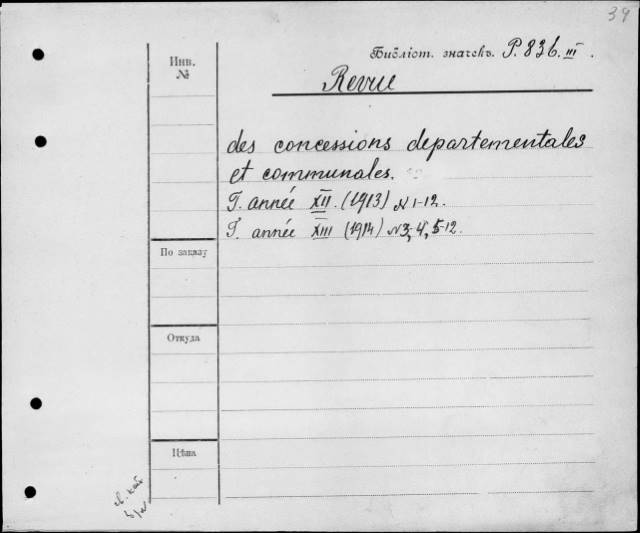 39
Библіот. значекъ. P. 836. III.
Инв.
№
Revue
des concessions departementales
et communales.
T. année XII. (1913) N 1-12.
T. année XIII (1914) N 3, 4, 5-12.
По заказу
Откуда
Цѣна